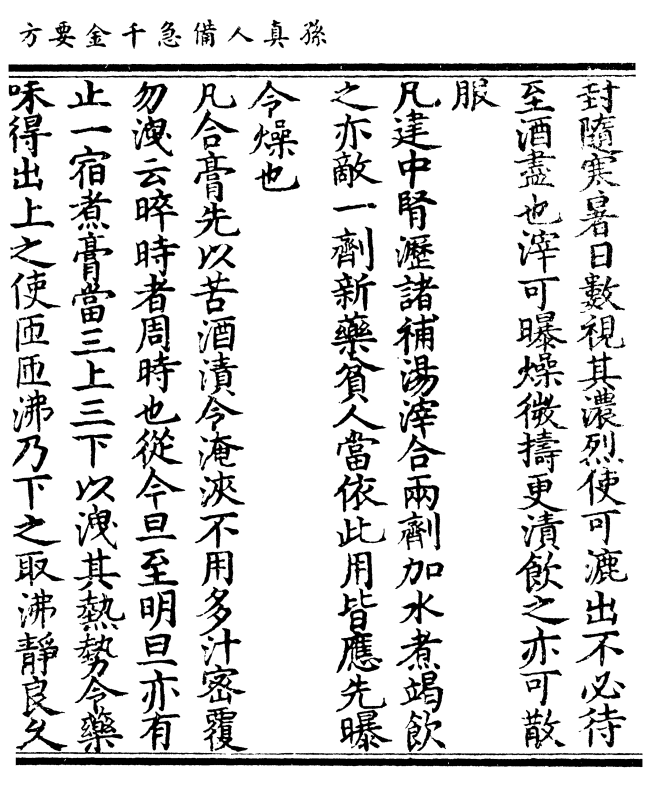 孫真人備急千金要方
封隨寒暑日數視其濃烈使可漉出不必待
至酒盡也滓可曝燥微擣更漬飲之亦可散
服
凡建中腎瀝諸補湯滓合兩劑加水煮竭飲
之亦敵一劑新藥貧人當依此用皆應先曝
令燥也
凡合膏先以苦酒漬令淹浹不用多汁密覆
勿洩云晬時者周時也從今旦至明旦亦有
止一宿煮膏當三上三下以洩其熱勢令藥
味得出上之使匝匝沸乃下之取沸靜良久